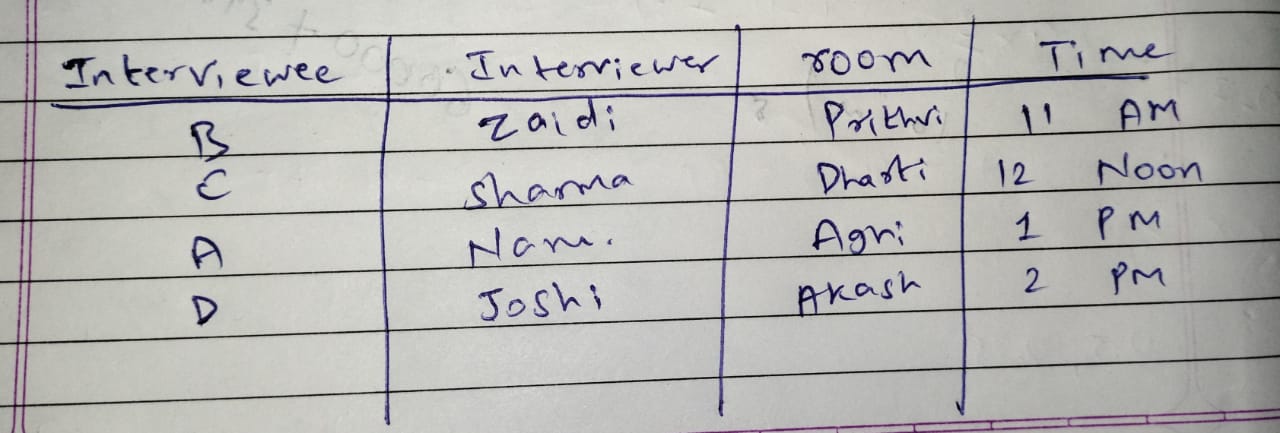 Interviewee Interviewer room Time
B Zaidi Prithvi 11 AM
C Sharma Dharti 12 Noon
A Agni 1 PM
D Joshi Akash 2 PM